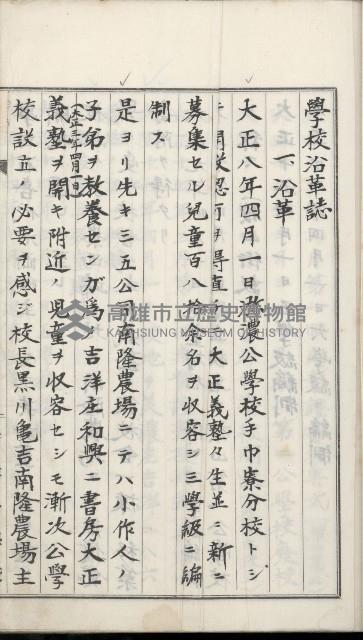 學校沿革誌
一、沿革
大正八年四月一日弥濃公學校手巾寮分校トシ
テ開設認可ヲ得直ニ大正義塾々生並ニ新ニ
募集セル兒童百八拾余名ヲ收容シ三學級ニ編
制ス
是ヨリ先キ三五公司南隆農場ニテハ小作人ノ
子弟ヲ教養センガ爲メ吉洋庄和興ニ書房大正
(大正三年四月一日)
義塾ヲ開キ附近ノ児童ヲ収容セシモ漸次公學
校設立ノ必要ヲ感ジ校長黒川亀吉南隆農場主
高雄市立歷史博物館
KAOHSIUNG MUSEUM OF HISTORY